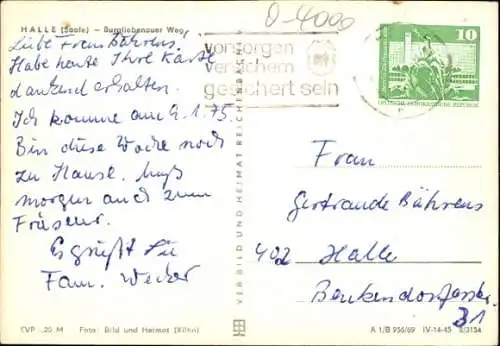 HALLE (Saale) – Burgliebenauer Weg
Liebe Frau Bährens!
Habe heute Ihre Karte
dankend erhalten.
Ich komme am 9.1.75.
Bin diese Woche noch
zu Hause. Muß
morgen auch zum
Friseur.
Es grüßt Sie
Fam. Weber
EVP -,20 M Foto: Bild und Heimat (Kühn)
VEB BILD UND HEIMAT REICHENBACH
0-4000
vorsorgen
versichern
gesichert sein
10
DEUTSCHE DEMOKRATISCHE REPUBLIK
Frau
Gertraude Bährens
402 Halle
Benkendorferstr.
31
A 1/B 956/69 IV-14-45 6/3154